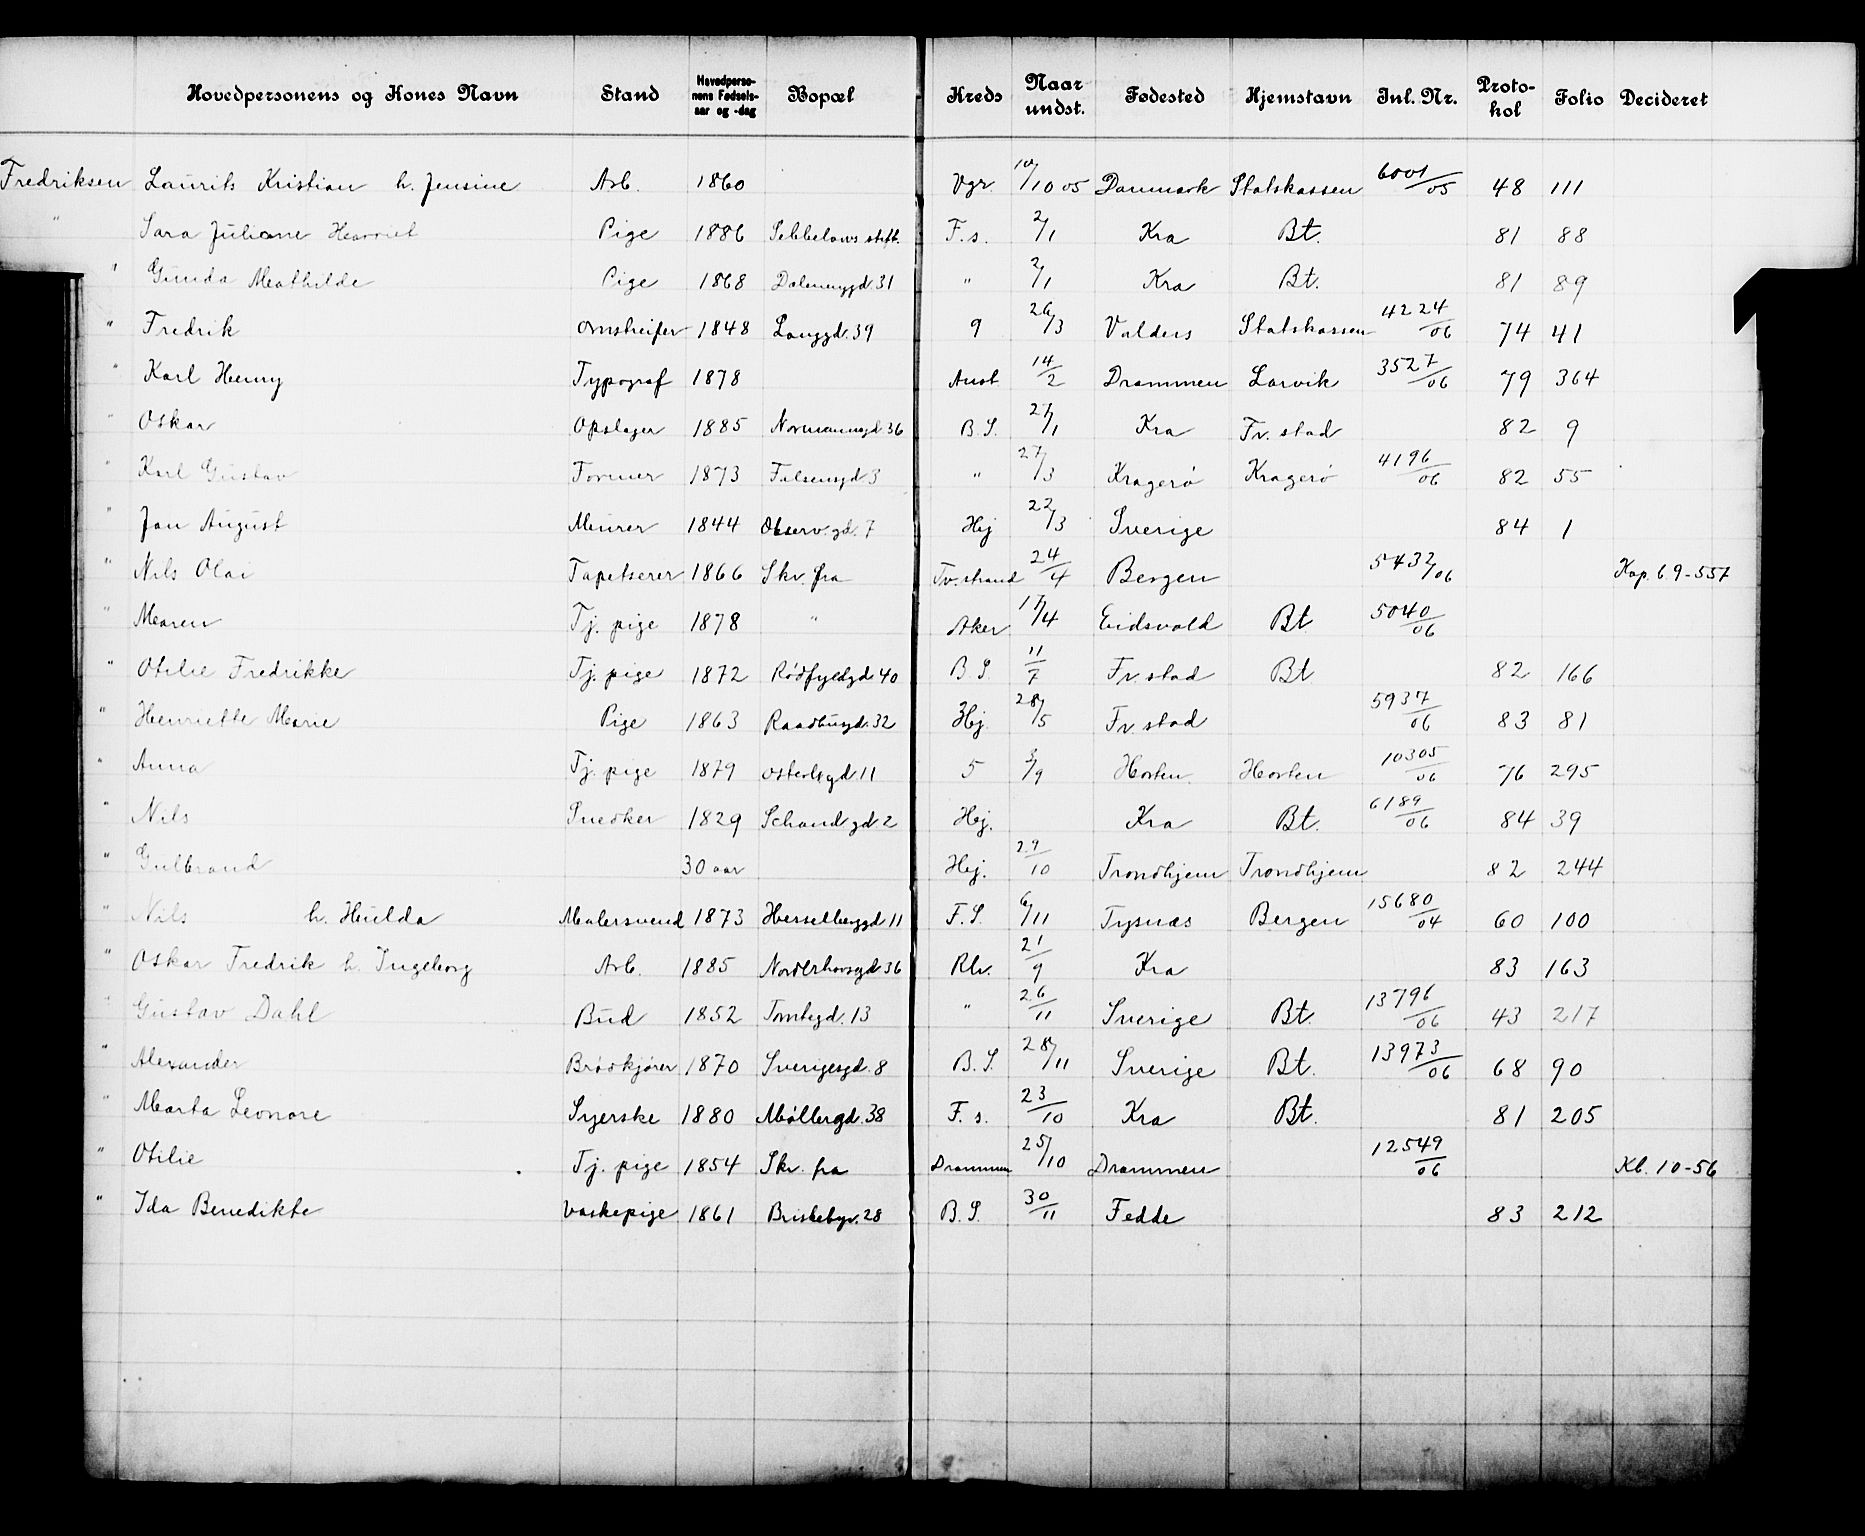 Hovedpersonens og Kones Navn Stand Hovedperso-nens Fødsels-aar og -dag Bopæl Kreds Naar undst. Fødested Hjemstavn Inl. Nr. Proto-kol Folio Decideret
Fredriksen Laurits Kristian h. Jensine Arb. 1860 Vgr. 10/10 05 Danmark Statskassen 6001/05 48 111
" Sara Juliane Harriet Pige 1886 Sebbelows stift. F.s. 2/1 Kra Bt. 81 88
" Gunda Mathilde Pige 1868 Dalenengd. 31 " 2/1 Kra Bt. 81 89
" Fredrik 1848 Langgd. 39 9 26/3 Valders Statskassen 4224/06 74 41
" Karl Henry Typograf 1878 Anst 14/2 Drammen Larvik 3527/06 79 364
" Oskar Opslager 1885 Normannsgd. 36 B.S. 27/1 Kra Fr. stad 82 9
" Karl Gustav Former 1873 Falsensgd 3 " 27/3 Kragerø Kragerø 4196/06 82 55
" Jan August Murer 1844 Observ. gd. 7 Hej 22/3 Sverige 84 1
" Nils Olai Tapetserer 1866 Skr. fra Tv. strand 24/4 Bergen 5432/06 Kop. 69-557
" Maren Tj. pige 1878 " Aker 17/4 Eidsvold Bt. 5040/06
" Otilie Fredrikke Tj. pige 1872 Rødfyldgd 40 B.S. 11/7 Fr. stad Bt 82 166
" Henriette Marie Pige 1863 Raadhusgd. 32 Hej. 28/5 Fr. stad 5937/06 83 81
" Anna Tj. pige 1879 Osterhsgd. 11 5 3/9 Horten Horten 10305/06 76 295
" Nils Snedker 1829 Schand gd. 2 Hej. Kra Bt. 6189/06 84 39
" Gulbrand 30 aar Hej. 29/10 Trondhjem Trondhjem 82 244
" Nils h. Hulda Malersvend 1873 Herselbsgd 11 F.S. 6/11 Tysnæs Bergen 15680/04 60 100
" Oskar Fredrik h. Ingeborg Arb. 1885 Norderhovsgd 36 Rlv. 21/9 Kra 83 163
" Gustav Dahl Bud 1852 Tomtegd. 13 " 26/11 Sverige Bt. 13796/06 43 217
" Alexander Brødkjører 1870 Sverigesgd. 8 B.S. 28/11 Sverige Bt. 13973/06 68 90
" Marta Leonore Syerske 1880 Møllergd. 38 F.s. 23/10 Kra Bt. 81 205
" Otilie Tj. pige 1854 Skr. fra Drammen 25/10 Drammen 12549/06 Kb. 10-56
" Ida Benedikte Vaskepige 1861 Briskebyv. 28 B.S. 30/11 Fedde 83 212